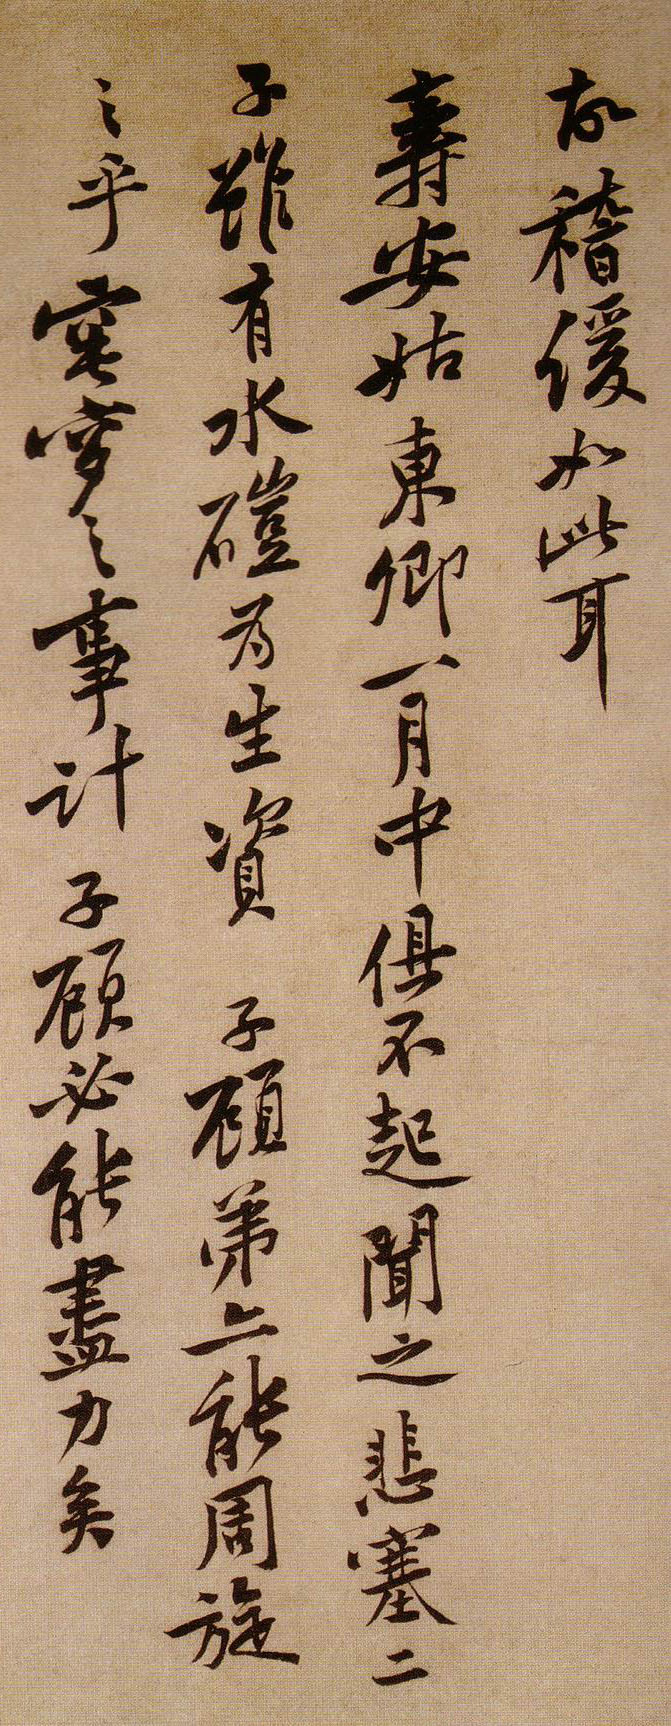 故稽缓如此耳
壽安姑東卿一月中俱不起聞之悲塞二
子雖有水磑為生資子顧弟亦能周旋
之乎窀穸之事計子顧必能盡力矣